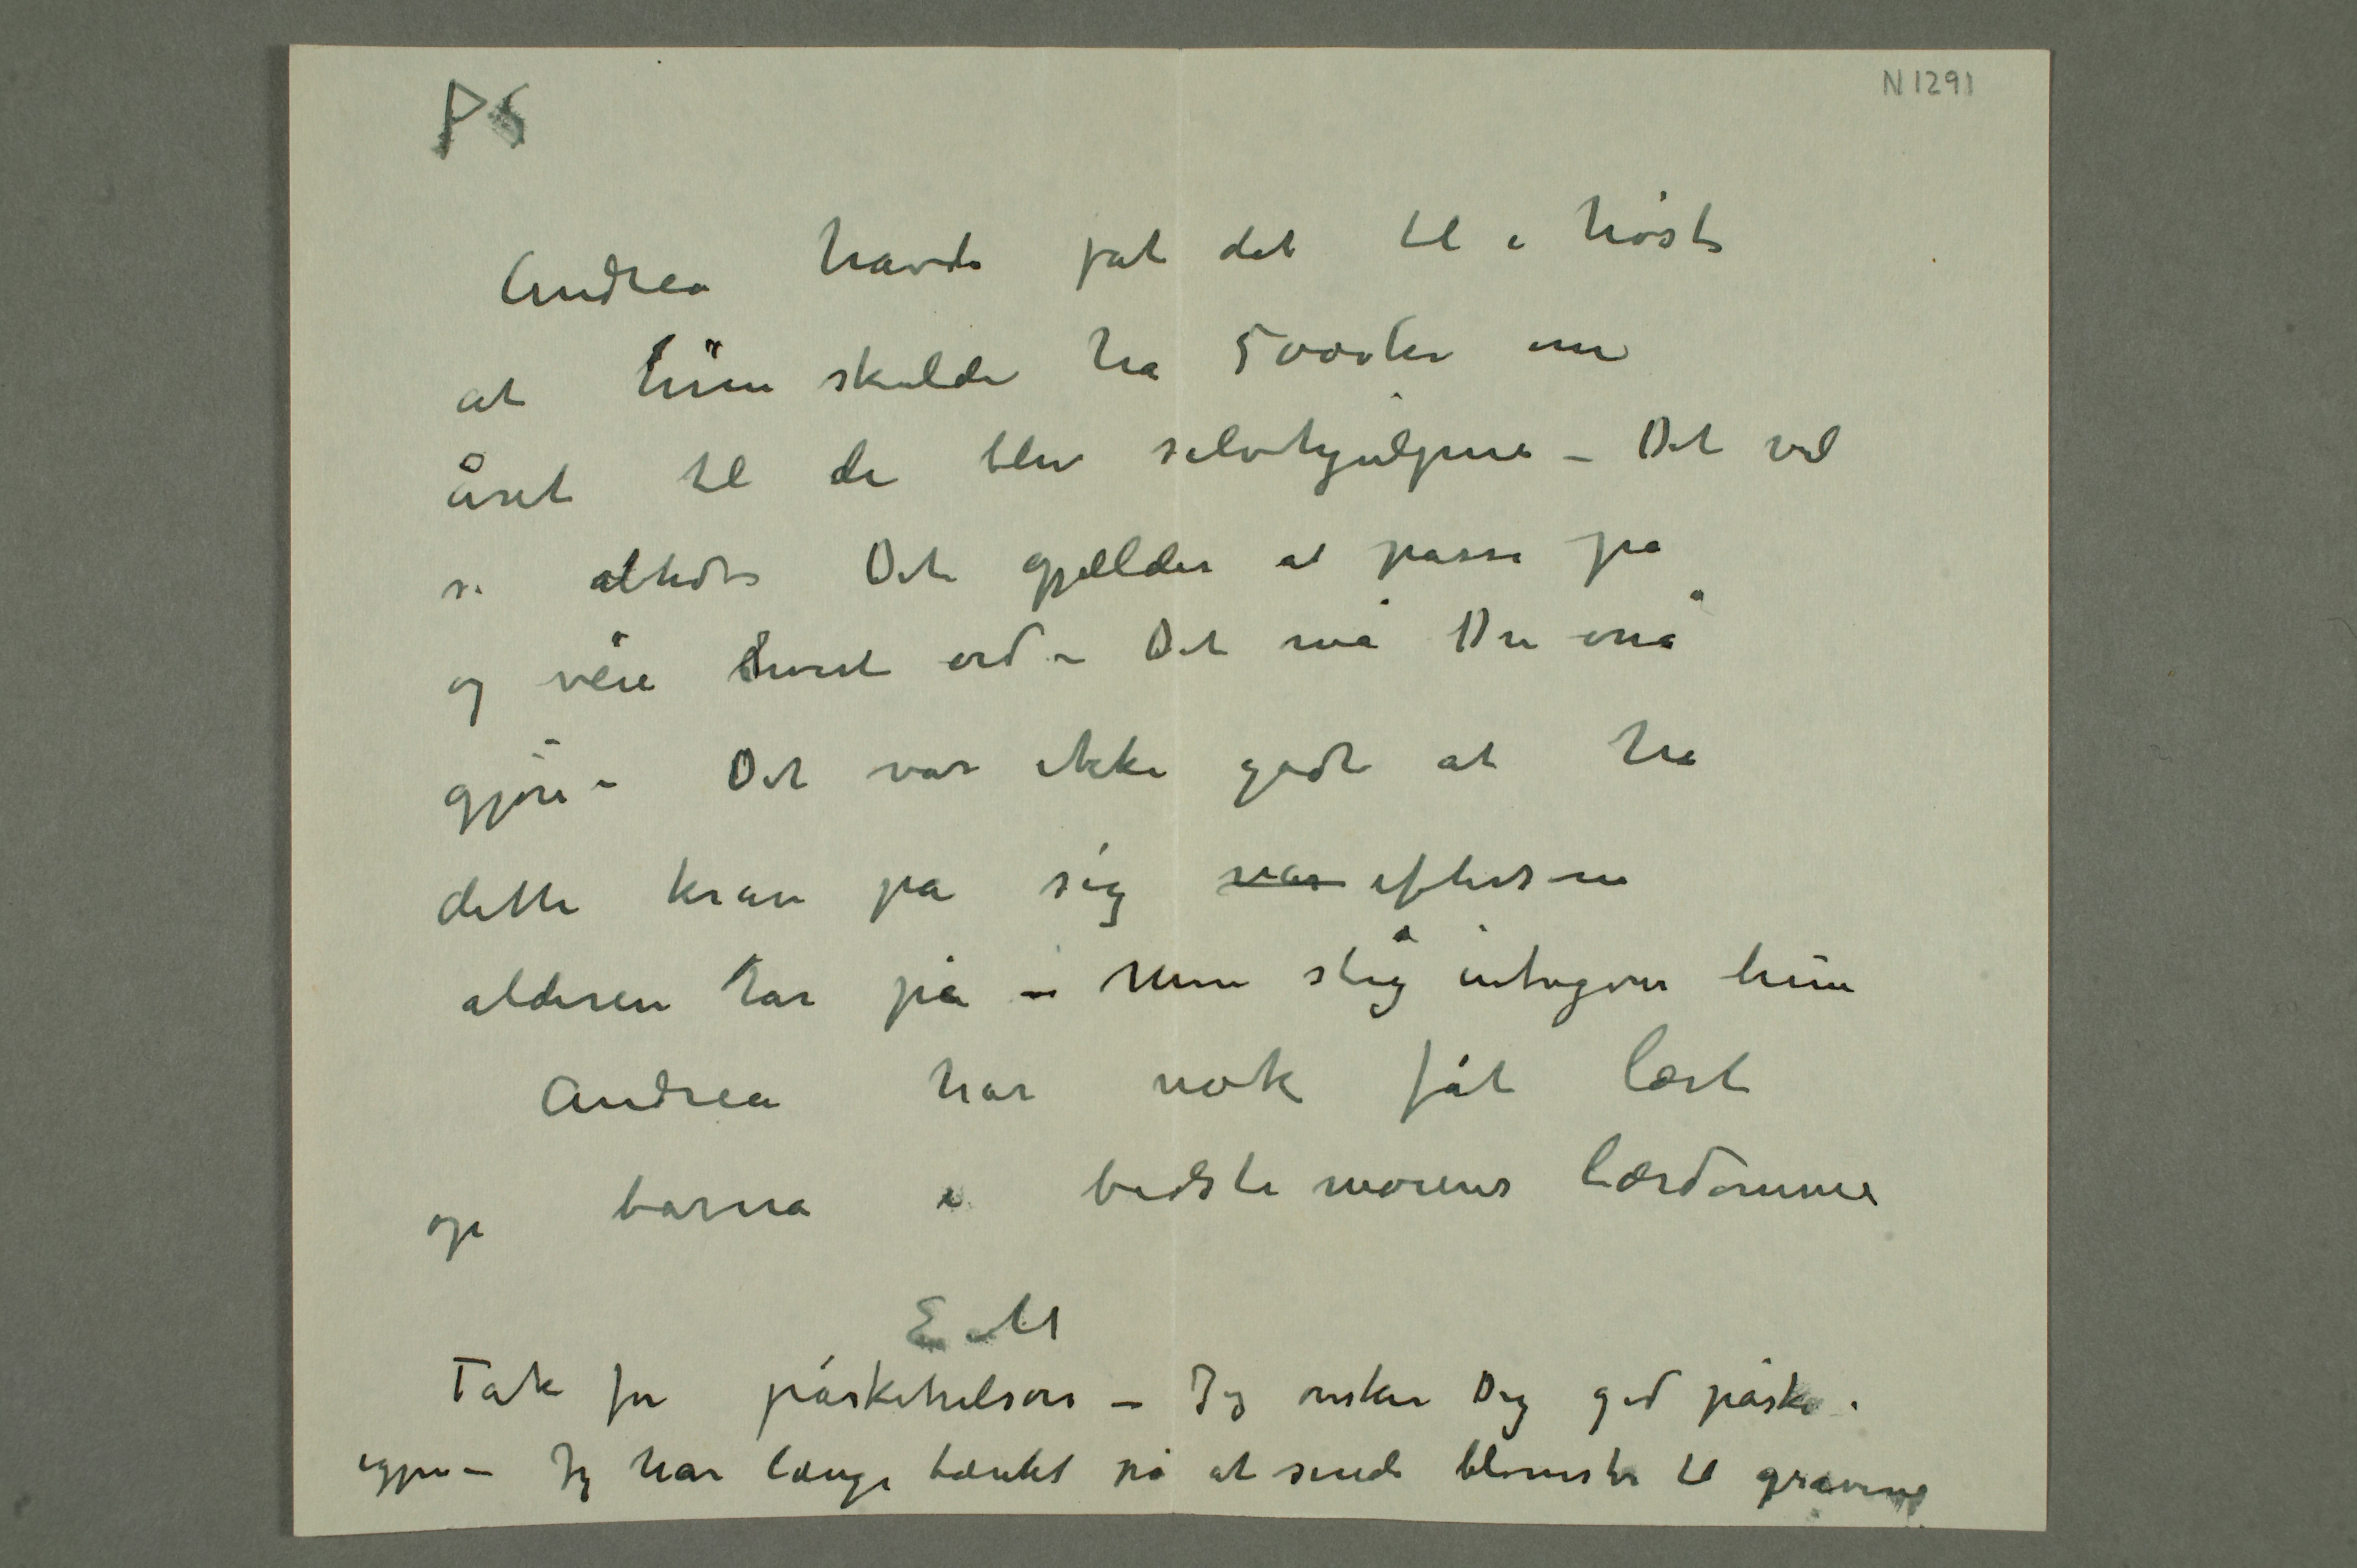 N 1291
PS
Andrea havde fåt det til i høst
at hun skulde ha 5000 kr om
året til de blev selvhjulpne – Det vil
si altidt Det gjælder at passe på
og veie hvert ord – Det må Du også
gjøre – Det var ikke godt at ha
dette krav på sig var eftersom
alderen tar på – Men slig intagon hun
Andrea har nok fåt lært
op barna i bedstemorens lærdomme
E M
Tak for påskehilsen – Jeg ønsker Dig god påske
igjen – Jeg har længe tænkt på at sende blomster til gravene